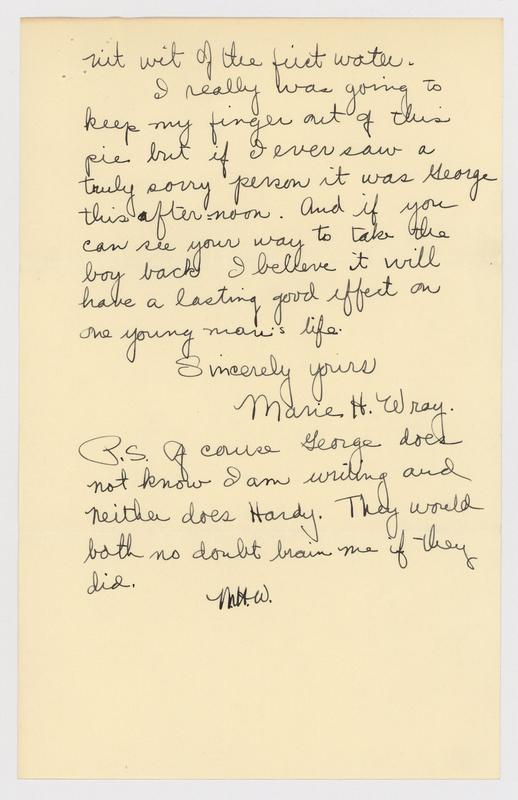 nit wit of the first water.
I really was going to
keep my finger out of this
pie but if I ever saw a
truly sorry person it was George
this afternoon. And if you
can see your way to take the
boy back I believe it will
have a lasting good effect on
one young man's life.
Sincerely yours
Marie H. Wray.
P.S. Of course George does
not know I am writing and
neither does Hardy. They would
both no doubt brain me if they
did.
M.H.W.